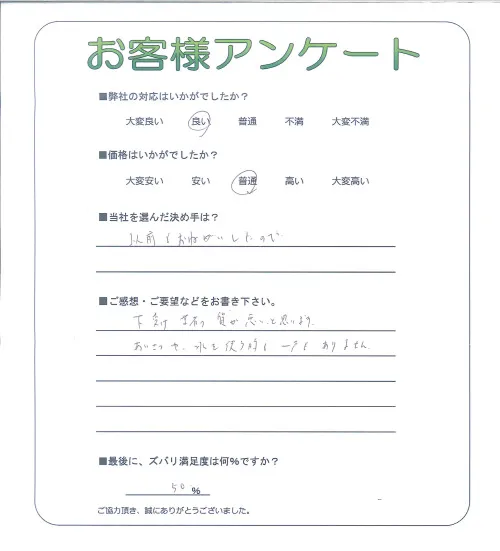 お客様アンケート
■弊社の対応はいかがでしたか？
大変良い 良い 普通 不満 大変不満
■価格はいかがでしたか？
大変安い 安い 普通 高い 大変高い
■当社を選んだ決め手は？
以前もお願いしたので
■ご感想・ご要望などをお書き下さい。
下受け 質が悪いと思います。
あいさつや、水を使う時も一声もありません。
■最後に、ズバリ満足度は何%ですか？
50 %
ご協力頂き、誠にありがとうございました。